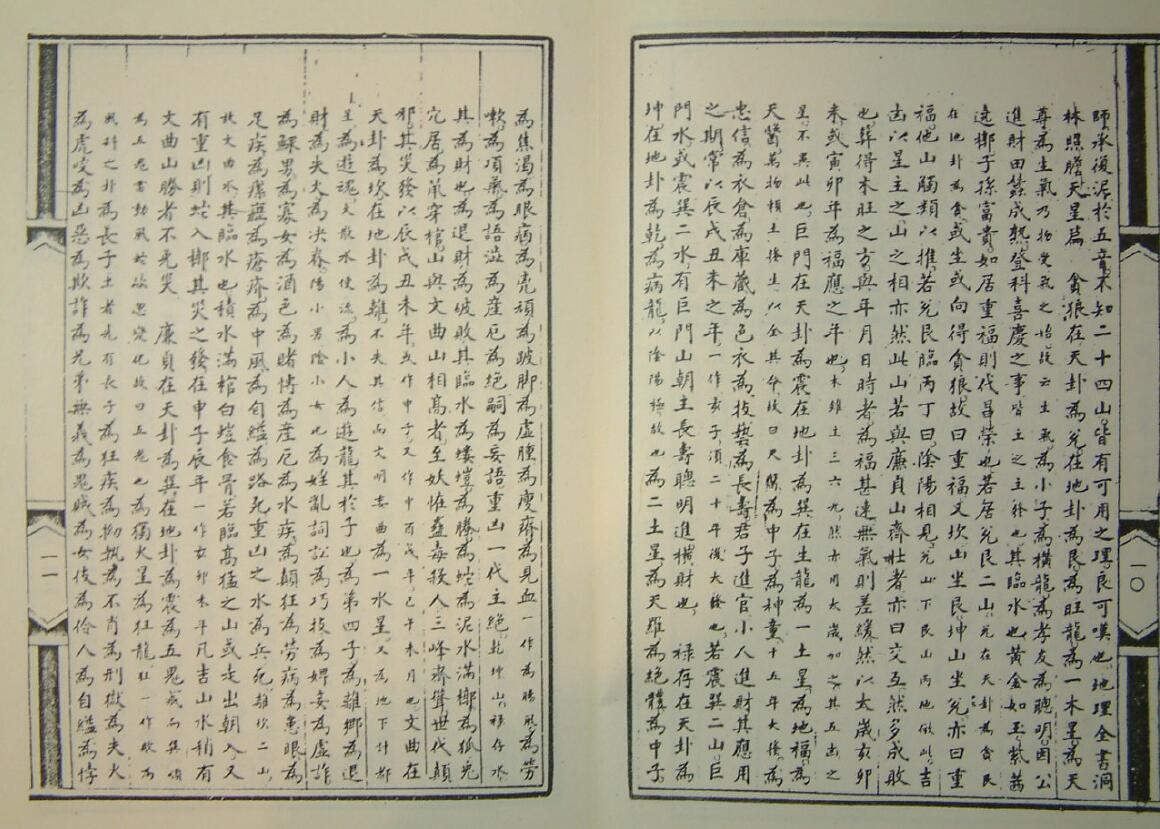 師承復泥於五音不知二十四山皆有可用之理良可嘆也地理全書洞
林照膽天星篇 貪狼在天卦為兌在地卦為艮為旺龍為一木星為天
尊為生氣乃物受氣之始故云生氣為小子為橫龍為孝友為聰明因公
進財田蠶成熟登科喜慶之事皆主之主外也其臨水也黃金如玉紫茜
遶槨子孫富貴如居重福則代昌榮也若居兌艮二山兌在天卦為貪艮
在地卦為貪或坐或向得貪狼故曰重福又坎山坐艮坤山坐兌亦曰重
福他山觸類以推若兌艮臨丙丁曰陰陽相見兌山下艮山丙地倣此吉
凶以星主之山之相亦然此山若與廉貞山齊壯者亦曰交互然多成敗
也葬得木旺之方與年月日時者為福甚速無氣則差緩然以太歲亥卯
未或寅卯年為福應之年也木雖主三六九然亦用太歲加之其五出之
星不異此也巨門在天卦為震在地卦為巽在生龍為一土星為地福為
天醫萬物賴土後生以全其命故曰天醫為中子為神童十五年大捷為
忠信為衣倉為庫藏為色衣為技藝為長壽君子進官小人進財其應用
之期常以辰戌丑未之年一作亥子須二十年後大發也若震巽二山巨
門水或震巽二水有巨門山朝主長壽聰明進橫財也 祿存在天卦為
坤在地卦為乾為病龍以陰陽極故也為二土星為天羅為絕體為中子
一〇
為焦渴為眼病為禿頑為跛脚為虛腫為瘦瘠為見血一作為腸風為勞
嗽為項氣為語澁為產厄為絕嗣為妄語重凶一代主絕乾坤山祿存水
其為財也為退財為破敗其臨水為螻螘為騰為蛇為泥水滿槨為狐兔
穴居為鼠穿棺山與文曲山相高者至妖怪蠱毒殺人三峰齊聳世代顛
邪其災發以辰戌丑未年或作申子又作申酉戌年己午未月也文曲在
天卦為坎在地卦為離不失其信而文明委曲為一水星又為地下計都
星為遊魂火散水使流為小人為遊龍其於子也為第四子為離鄉為退
財為失火為決脊陽小男陰小女也為婬亂詞訟為巧技為婢妾為虛詐
為鰥男為寡女為酒色為賭博為產厄為水疾為顛狂為勞病為患眼為
足疾為瘰癧為瘡疥為中風為自縊為路死重凶之水為兵死離坎二山
放文曲水其臨水也積水滿棺白螘食骨若臨高猛之山或走出朝入又
有重凶則蛇入槨其災之發在申子辰年一作亥卯未年凡吉山水稍有
文曲山勝者不免哭 廉貞在天卦為巽在地卦為震為五鬼
為五鬼 為獨火星為狂龍
之卦為長子 為狂疾為拗執為不肖為刑獄為失火
為虎咬為凶惡為欺詐為兄弟無義為鬼賊為女伎為伶人為自縊為悖
一一